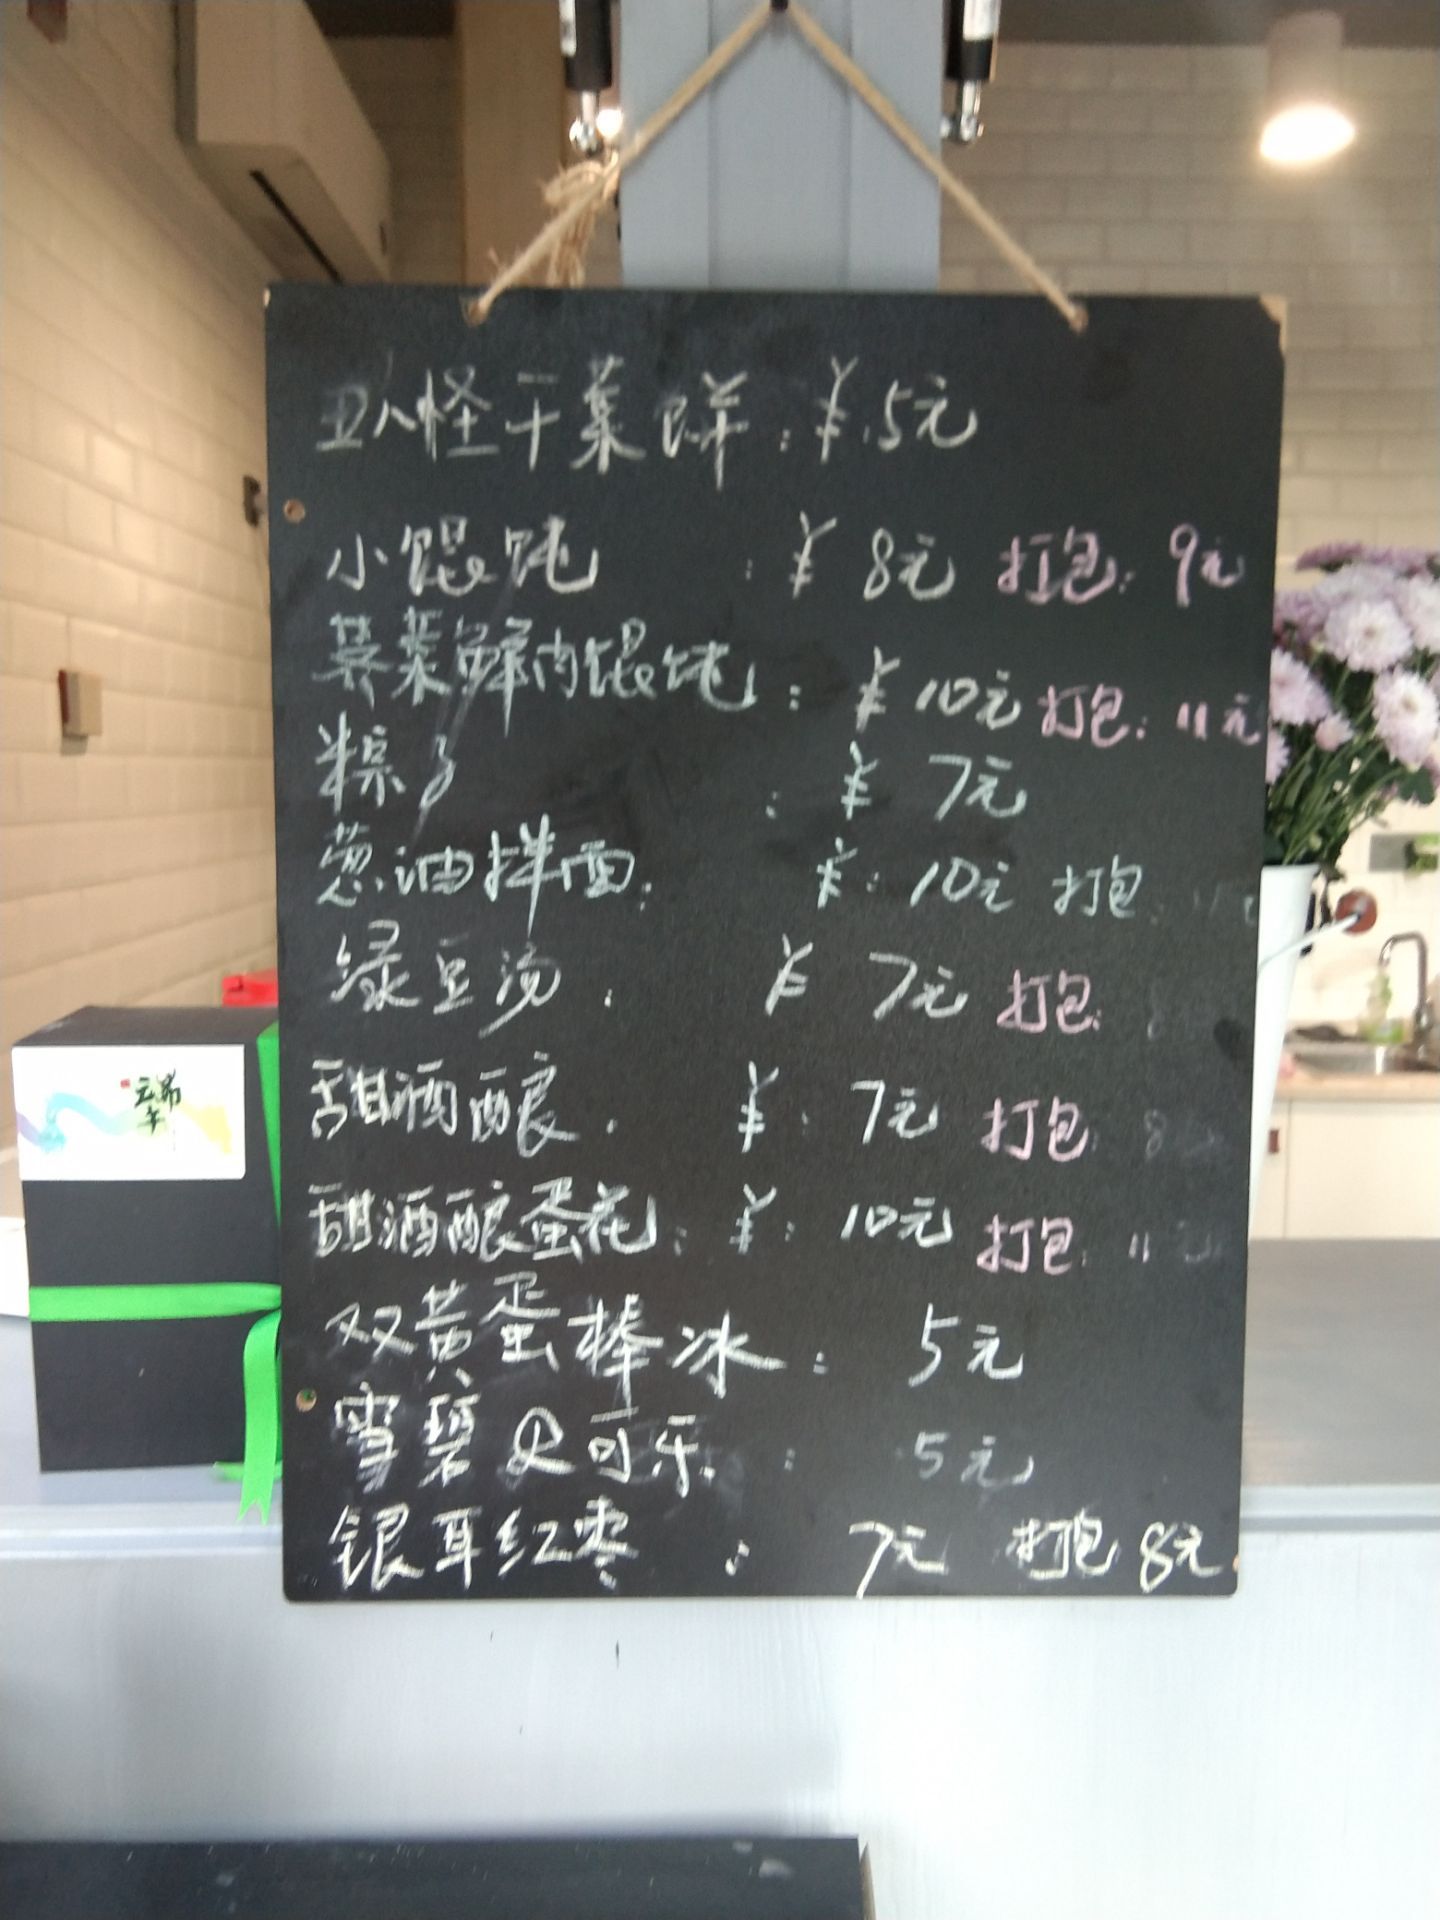 怪干菜饼:¥.5元
小馄饨 : ¥ 8元 打包: 9元
荠菜鲜肉馄饨: ¥ 10元 打包: 11元
粽子 : ¥ 7元
葱油拌面: ¥: 10元 打包: 11元
绿豆汤. ¥ 7元 打包: 8
甜酒酿. ¥: 7元 打包: 8
甜酒酿蛋花: ¥: 10元 打包: 11元
双黄蛋棒冰: 5元
雪碧 可乐: 5元
银耳红枣 : 7元 打包 8元
端午